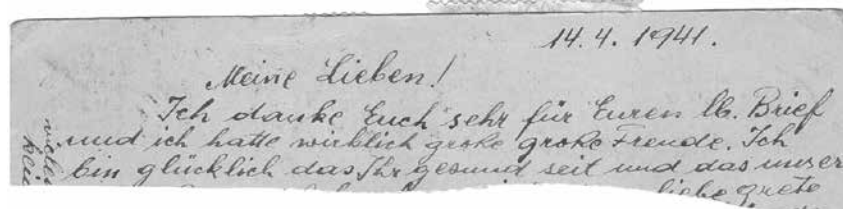 14.4.1941.
Meine Lieben!
Ich danke Euch sehr für Euren lb. Brief
und ich hatte wirklich große große Freude. Ich
bin glücklich das Ihr gesund seit und das unser
liebe Grete